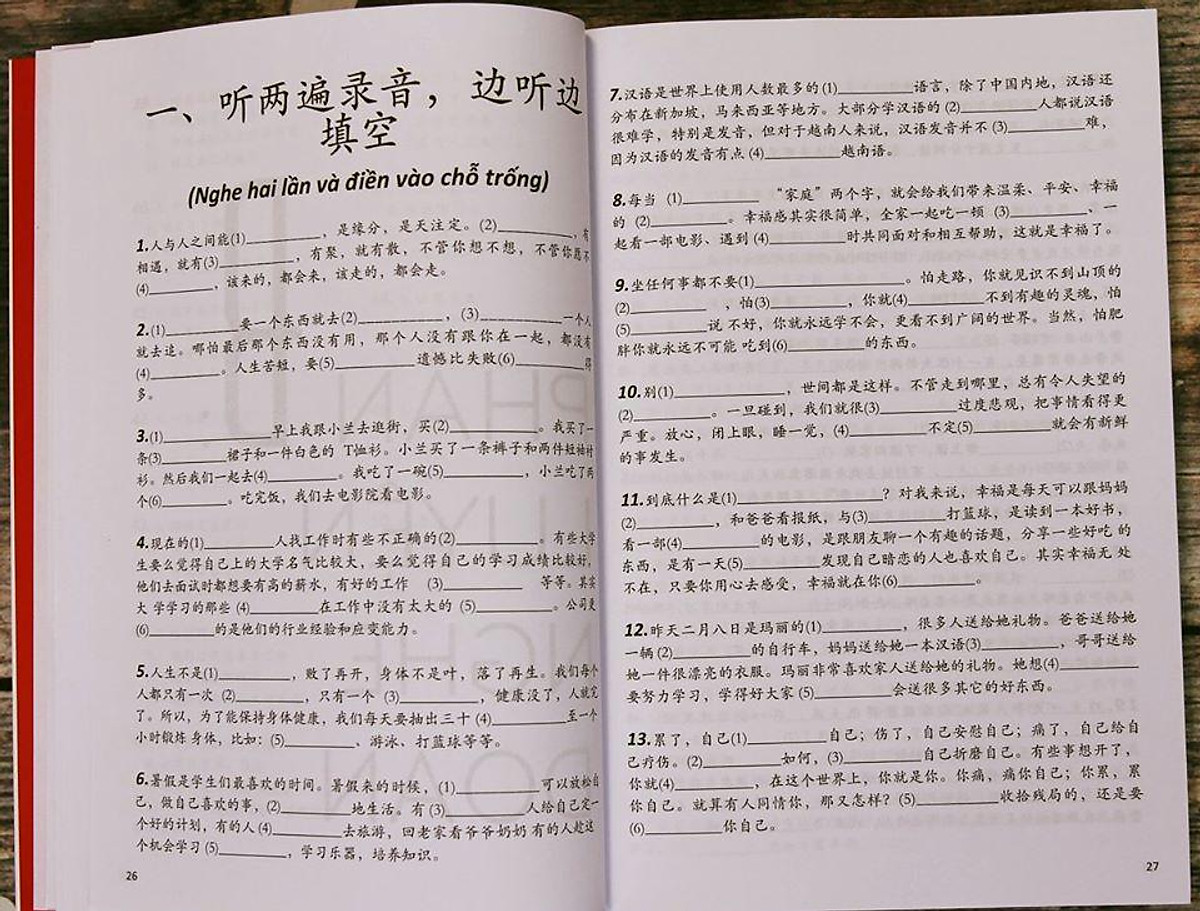 一、听两遍录音，边听边
填空
(Nghe hai lần và điền vào chỗ trống)
1.人与人之间能(1)__________，是缘分，是天注定。(2)__________，有
相遇，就有(3)__________，有聚，就有散，不管你想不想，不管你愿不
(4)__________，该来的，都会来，该走的，都会走。
2.(1)__________要一个东西就去(2)__________，(3)__________一个人
就去追。哪怕最后那个东西没有用，那个人没有跟你在一起，都没有
(4)__________。人生苦短，要(5)__________遗憾比失败(6)__________得
多。
3.(1)__________早上我跟小兰去逛街，买(2)__________。我买了一
条(3)__________裙子和一件白色的 T恤衫。小兰买了一条裤子和两件短袖衬
衫。然后我们一起去(4)__________。我吃了一碗(5)__________，小兰吃了两
个(6)__________。吃完饭，我们去电影院看电影。
4.现在的(1)__________人找工作时有些不正确的(2)__________。有些大学
生要么觉得自己上的大学名气比较大，要么觉得自己的学习成绩比较好，
他们去面试时都想要有高的薪水，有好的工作 (3)__________ 等等。其实
大 学学习的那些 (4)__________在工作中没有太大的 (5)__________。公司更
(6)__________的是他们的行业经验和应变能力。
5.人生不是(1)__________，败了再开，身体不是叶，落了再生。我们每个
人都只有一次 (2)__________，只有一个 (3)__________，健康没了，人就完
了。所以，为了能保持身体健康，我们每天要抽出三十 (4)__________至一个
小时锻炼身体，比如：(5)__________、游泳、打篮球等等。
6.暑假是学生们最喜欢的时间。暑假来的时候，(1)__________可以放松自
己，做自己喜欢的事，(2)__________地生活。有 (3)__________人给自己定一
个好的计划，有的人(4)__________去旅游，回老家看爷爷奶奶 有的人趁这
个机会学习 (5)__________，学习乐器，培养知识。
26
7.汉语是世界上使用人数最多的 (1)__________语言，除了中国内地，汉语还
分布在新加坡，马来西亚等地方。大部分学汉语的 (2)__________人都说汉语
很难学，特别是发音，但对于越南人来说，汉语发音并不 (3)__________难，
因为汉语的发音有点 (4)__________越南语。
8.每当 (1)__________ “家庭”两个字，就会给我们带来温柔、平安、幸福
的 (2)__________。幸福感其实很简单，全家一起吃一顿 (3)__________、一
起看一部电影、遇到 (4)__________时共同面对和相互帮助，这就是幸福了。
9.坐任何事都不要(1)__________。怕走路，你就见识不到山顶的
(2)__________，怕(3)__________，你就(4)__________不到有趣的灵魂，怕
(5)__________说 不好，你就永远学不会，更看不到广阔的世界。当然，怕肥
胖你就永远不可能 吃到(6)__________的东西。
10.别(1)__________，世间都是这样。不管走到哪里，总有令人失望的
(2)__________。一旦碰到，我们就很(3)__________过度悲观，把事情看得更
严重。放心，闭上眼，睡一觉，(4)__________不定(5)__________就会有新鲜
的事发生。
11.到底什么是(1)__________？对我来说，幸福是每天可以跟妈妈
(2)__________，和爸爸看报纸，与(3)__________打篮球，是读到一本好书，
看一部(4)__________的电影，是跟朋友聊一个有趣的话题，分享一些好吃 的
东西，是有一天(5)__________发现自己暗恋的人也喜欢自己。其实幸福无 处
不在，只要你用心去感受，幸福就在你(6)__________。
12.昨天二月八日是玛丽的(1)__________，很多人送给她礼物。爸爸送给她
一辆(2)__________的自行车，妈妈送给她一本汉语(3)__________，哥哥送给
她一件很漂亮的衣服。玛丽非常喜欢家人送给她的礼物。她想(4)__________
要努力学习，学得好大家 (5)__________会送很多其它的好东西。
13.累了，自己(1)__________自己；伤了，自己安慰自己；痛了，自己给自
己疗伤。(2)__________如何，(3)__________自己折磨自己。有些事想开了，
你就(4)__________，在这个世界上，你就是你。你痛，痛你自己；你累，累
你自己。就算有人同情你，那又怎样？(5)__________收拾残局的，还是要
(6)__________你自己。
27